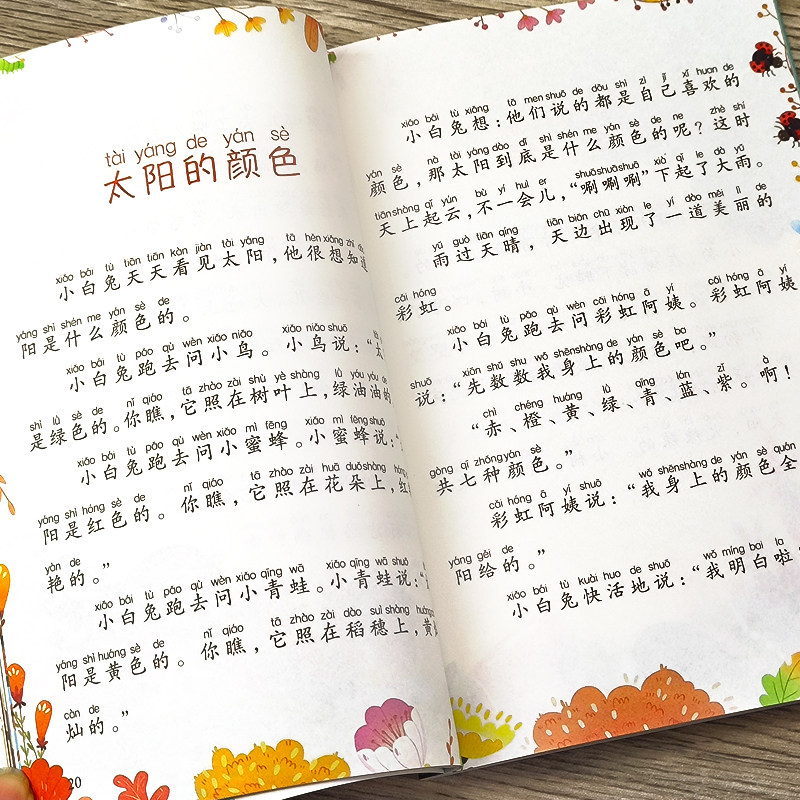 tài yáng de yán sè
太阳的颜色
xiǎo bái tù tiān tiān kàn jiàn tài yáng tā hěn xiǎng zhī
小白兔天天看见太阳，他很想知道
yáng shì shén me yán sè de
阳是什么颜色的。
xiǎo bái tù pǎo qù wèn xiǎo niǎo xiǎo niǎo shuō
小白兔跑去问小鸟。小鸟说：“太
shì lǜ sè de nǐ qiáo tā zhào zài shù yè shàng lǜ yóu yóu de
是绿色的。你瞧，它照在树叶上，绿油油的
xiǎo bái tù pǎo qù wèn xiǎo mì fēng xiǎo mì fēng shuō
小白兔跑去问小蜜蜂。小蜜蜂说：“
yáng shì hóng sè de nǐ qiáo tā zhào zài huā duǒ shàng hóng
阳是红色的。你瞧，它照在花朵上，红
yàn de
艳的。”
xiǎo bái tù pǎo qù wèn xiǎo qīng wā xiǎo qīng wā shuō
小白兔跑去问小青蛙。小青蛙说：“
yáng shì huáng sè de nǐ qiáo tā zhào zài dào suì shàng huáng
阳是黄色的。你瞧，它照在稻穗上，黄
càn de
灿的。”
20
xiǎo bái tù xiǎng tā men shuō de dōu shì zì jǐ xǐ huan de
小白兔想：他们说的都是自己喜欢的
yán sè nà tài yáng dào dǐ shì shén me yán sè de ne zhè shí
颜色，那太阳到底是什么颜色的呢？这时
tiān shàng qǐ yún bù yí huì er shuā shuā shuā xià qǐ le dà yǔ
天上起云，不一会儿，“唰唰唰”下起了大雨。
yǔ guò tiān qíng tiān biān chū xiàn le yí dào měi lì de
雨过天晴，天边出现了一道美丽的
cǎi hóng
彩虹。
xiǎo bái tù pǎo qù wèn cǎi hóng ā yí cǎi hóng ā yí
小白兔跑去问彩虹阿姨。彩虹阿姨
shuō xiān shǔ shu wǒ shēn shàng de yán sè ba
说：“先数数我身上的颜色吧。”
chì chéng huáng lǜ qīng lán zǐ à
“赤、橙、黄、绿、青、蓝、紫。啊！
gòng qī zhǒng yán sè
共七种颜色。”
cǎi hóng ā yí shuō wǒ shēn shàng de yán sè quán
彩虹阿姨说：“我身上的颜色全
yáng gěi de
阳给的。”
xiǎo bái tù kuài huó de shuō wǒ míng bai la
小白兔快活地说：“我明白啦